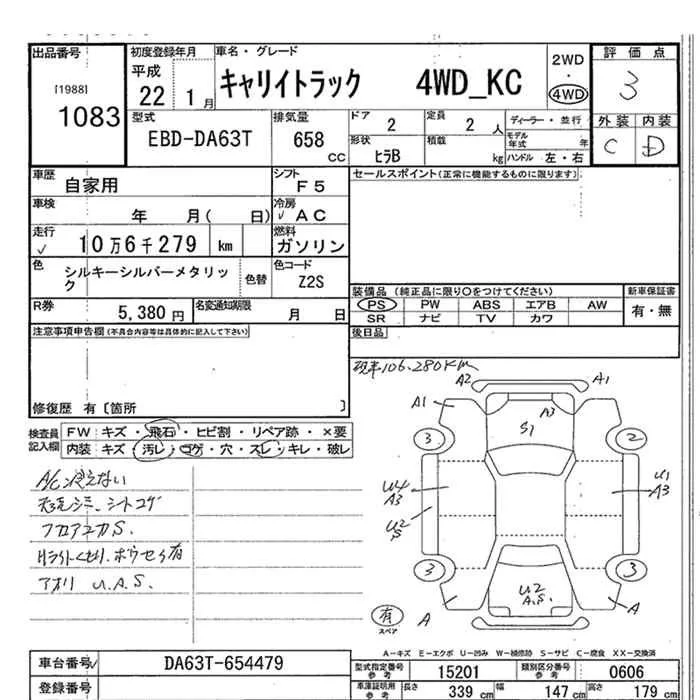 出品番号 初度登録年月 車名・グレード 2WD 評価点
[1988] 平成 キャリイトラック 4WD_KC ・ 3
1083 22 1月 4WD
型式 排気量 ドア 定員 ディーラー・並行 外装 内装
EBD-DA63T 658 CC 2 2人 モデル年式 年 C D
形状 ヒラB 積載 kg ハンドル 左・右
車歴 自家用 シフト F5 セールスポイント(正常に機能するものに限ります)
車検 年 月( 日) 冷房 √ AC
走行 √ 10万6千279 km 燃料 ガソリン
色 シルキーシルバーメタリック 色替 色コード Z2S
装備品 (純正品に限り〇をつけてください) 新車保証書
R券 5,380円 名変通知期限 月 日 PS PW ABS エアB AW 有・無
SR ナビ TV カワ
注意事項申告欄(不具合内容等は具体的に記入して下さい) 後日品
現車106,280Km
修復歴 有〔箇所 〕
検査員記入欄 FW キズ・飛石・ヒビ割・リペア跡・×要
内装 キズ・汚レ・コゲ・穴・スレ・キレ・破レ
A2 A1
A1 A3
S1
3 2
A/C 冷えない
シートコゲ
U4 A3 U1 A3
フロアコカS.
U2 S
アオリ U.A.S.
3 3
U2 A.S.
A A
有 スペア
A-キズ E-エクボ U-凹み W-補修跡 S-サビ C-腐食 XX-交換済
車台番号 DA63T-654479 型式指定番号 参考 15201 類別区分番号 参考 0606
登録番号 車庫証明用 参考 長さ 339 cm 幅 147 cm 高さ 179 cm